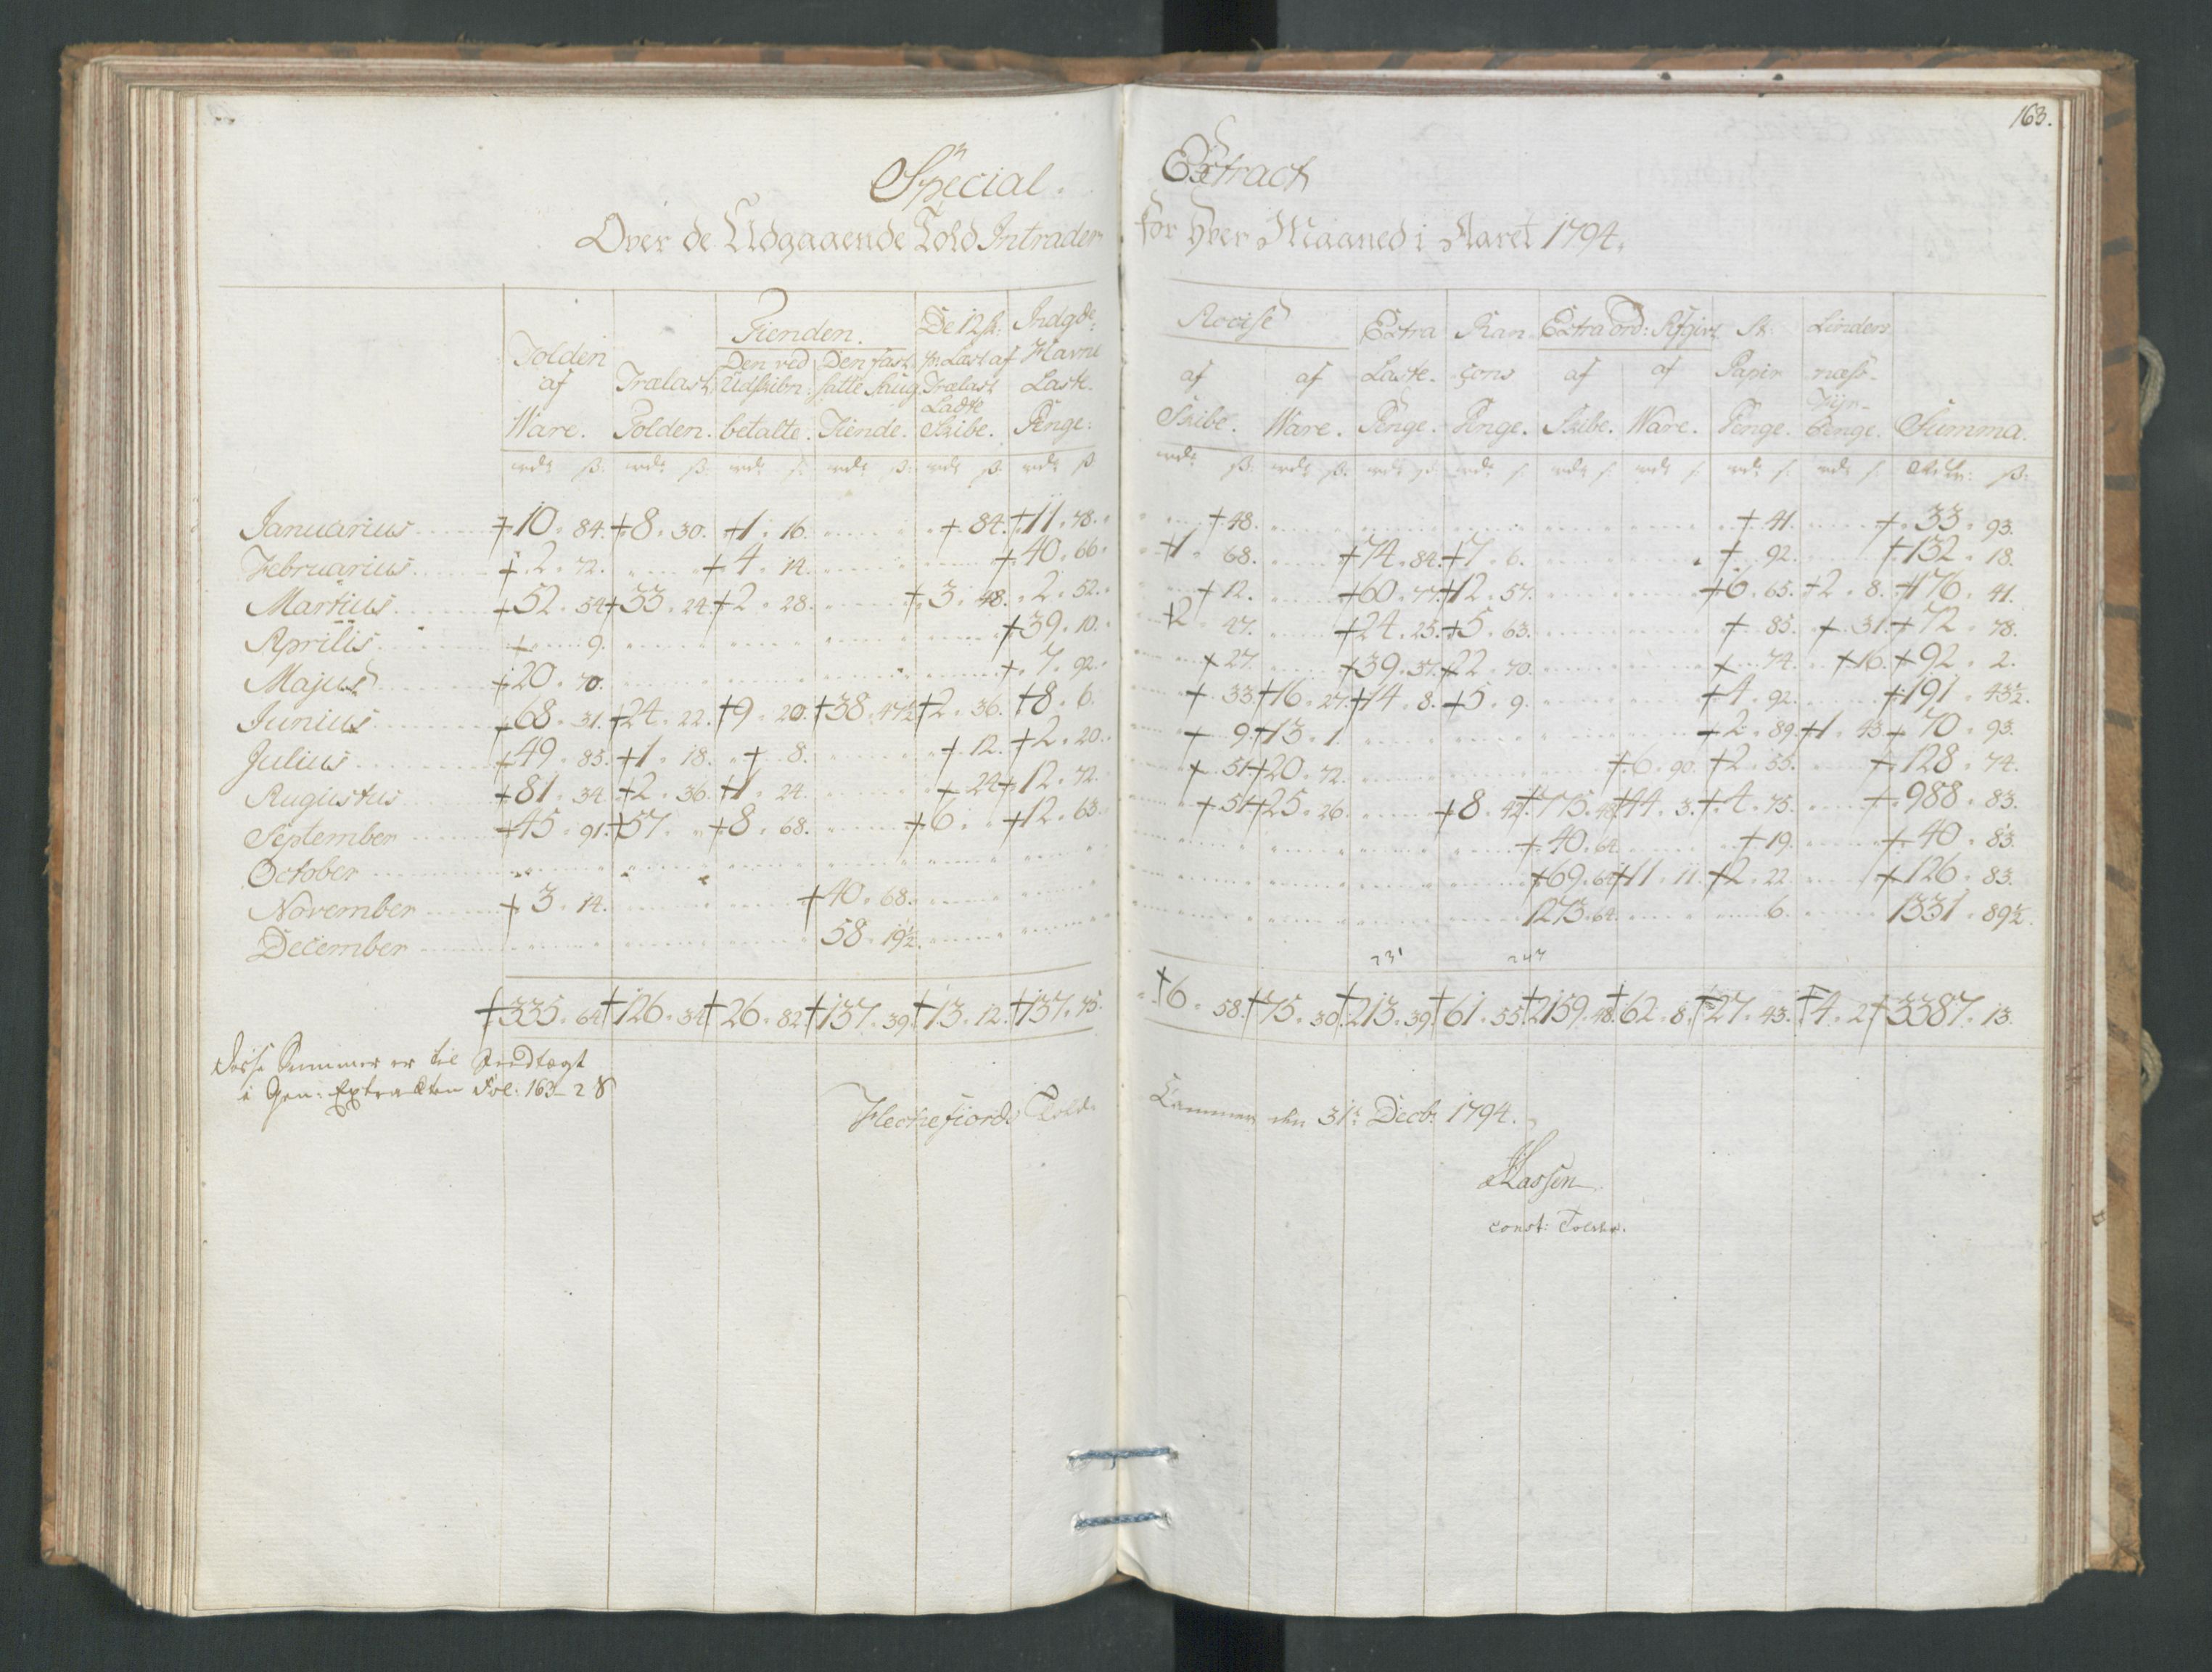 163.
Special Extract
Over de Udgaaende Told Intrader for Hver Maaned i Aaret 1794.
Tolden af Ware. | Trælast Tolden. | Tienden. Den ved Udskibn: betalte. | Den fastsatte Saug Tiende. | De 12 ſk: pr: Læst af Trælast Ladte Skibe. | Indgde: Havne Læste Penge. | Accise af Skibe. | af Ware. | Extra Læste Penge. | Ran çons Penge. | Extraord: Afgivt af Skibe. | af Ware. | St: Papir Penge. | Lindesnæss Fyr-Penge. | Summa.
rdr ß: rdr ß: rdr ß: rdr ß: rdr ß: rdr ß: rdr ß: rdr ß: rdr ß: rdr ß: rdr ß: rdr ß: rdr ß: rdr ß: ß:
Januarius 10. 84. 8. 30. 1. 16. 84. 11. 78. 48. 41. 33. 93.
Februarius 2. 72. 4. 14. 40. 66. 1. 68. 74. 84. 7. 6. 92. 132. 18.
Martius 52. 54. 33. 24. 2. 28. 3. 48. 2. 52. 12. 60. 77. 12. 57. 6. 65. 2. 8. 176. 41.
Aprilis 9. 39. 10. 2. 47. 24. 25. 5. 63. 85. 31. 72. 78.
Majus 20. 70. 7. 92. 27. 39. 37. 22. 70. 74. 16. 92. 2.
Junius 68. 31. 24. 22. 9. 20. 38. 47½ 2. 36. 8. 6. 33. 16. 27. 14. 8. 5. 9. 4. 92. 191. 43½.
Julius 49. 85. 1. 18. 8. 12. 2. 20. 9. 13. 1. 2. 89. 1. 43. 70. 93.
Augustus 81. 34. 2. 36. 1. 24. 24. 12. 72. 51. 20. 72. 6. 90. 2. 55. 128. 74.
September 45. 91. 57. 8. 68. 6. 12. 63. 51. 25. 26. 8. 42. 775. 48. 44. 3. 4. 75. 988. 83.
October 40. 64. 19. 40. 83.
November 3. 14. 40. 68. 69. 64. 11. 11. 2. 22. 126. 83.
December 58. 19½. 1273. 64. 6. 1331. 89½.
335. 64. 126. 34. 26. 82. 137. 39. 13. 12. 137. 75. 6. 58. 75. 30. 213. 39. 61. 55. 2159. 48. 62. 8. 27. 43. 4. 2. 3387. 13.
Disse Summer er til Indtægt
i Gen: Extracten Fol: 163 - 2 ß
Flechefiords Told Kammer den 31t Decb: 1794.
const: Tolder.